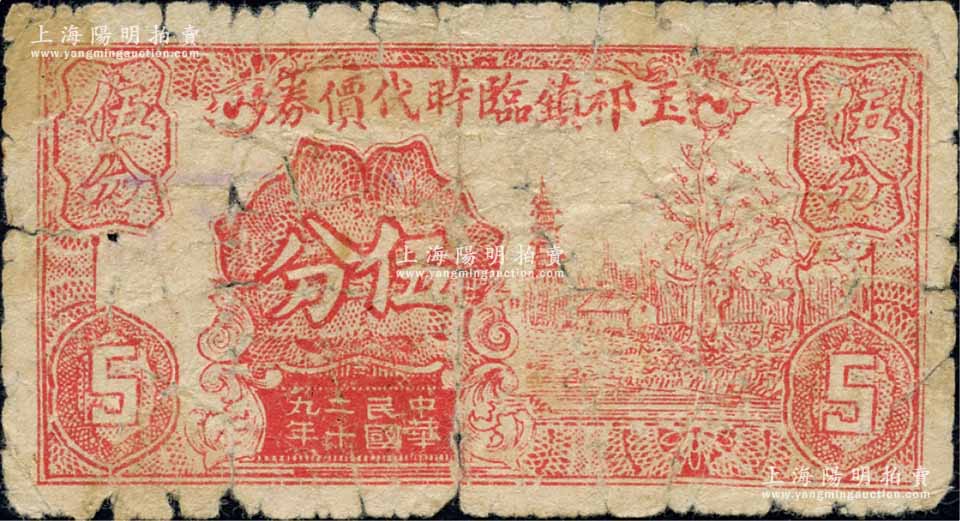 上海陽明拍賣
www.yangmingauction.com
玉祁鎮臨時代價券
伍分
伍分
伍分
上海陽明拍賣
www.yangmingauction.com
5
5
中華
民國
二十
九年
上海陽明拍賣
www.yangmingauction.com